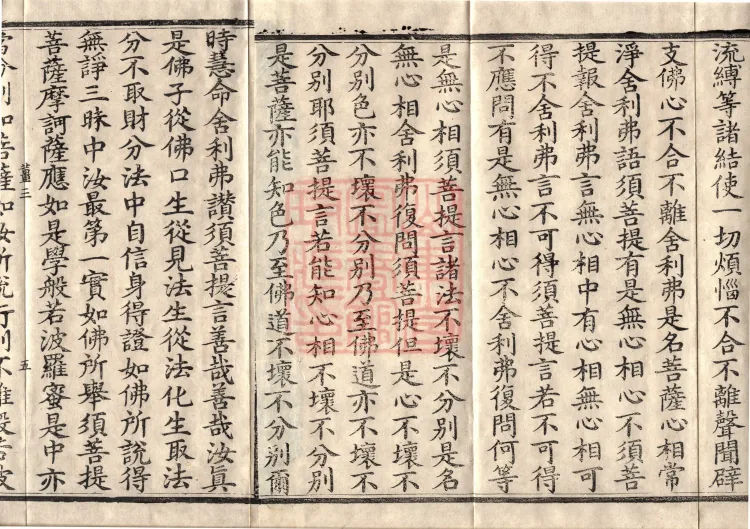 流縛等諸結使一切煩惱不合不離聲聞辟
支佛心不合不離舍利弗是名菩薩心相常
淨舍利弗語須菩提有是無心相心不須菩
提報舍利弗言無心相中有心相無心相可
得不舍利弗言不可得須菩提言若不可得
不應問有是無心相心不舍利弗復問何等
是無心相須菩提言諸法不壞不分別是名
無心相舍利弗復問須菩提但是心不壞不
分別色亦不壞不分別乃至佛道亦不壞不
分別耶須菩提言若能知心相不壞不分別
是菩薩亦能知色乃至佛道不壞不分別爾
時慧命舍利弗讚須菩提言善哉善哉汝真
是佛子從佛口生從見法生從法化生取法
分不取財分法中自信身得證如佛所說得
無諍三昧中汝最第一實如佛所舉須菩提
菩薩摩訶薩應如是學般若波羅蜜是中亦
薑三 五
當分別知菩薩如汝所說行則不離般若波